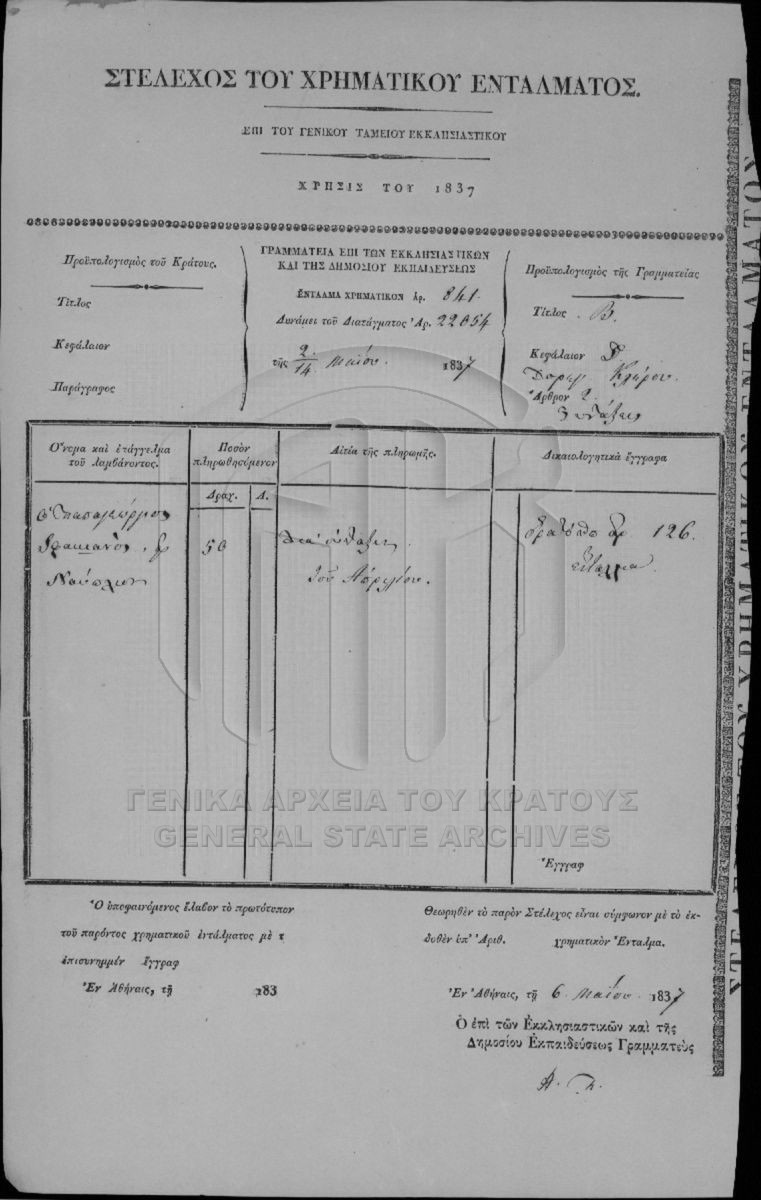 ΣΤΕΛΕΧΟΣ ΤΟΥ ΧΡΗΜΑΤΙΚΟΥ ΕΝΤΑΛΜΑΤΟΣ.
ΕΠΙ ΤΟΥ ΓΕΝΙΚΟΥ ΤΑΜΕΙΟΥ ΕΚΚΛΗΣΙΑΣΤΙΚΟΥ
ΧΡΗΣΙΣ ΤΟΥ 1837
Προϋπολογισμὸς τοῦ Κράτους.
Τίτλος
Κεφάλαιον
Παράγραφος
ΓΡΑΜΜΑΤΕΙΑ ΕΠΙ ΤΩΝ ΕΚΚΛΗΣΙΑΣΤΙΚΩΝ
ΚΑΙ ΤΗΣ ΔΗΜΟΣΙΟΥ ΕΚΠΑΙΔΕΥΣΕΩΣ
ΕΝΤΑΛΜΑ ΧΡΗΜΑΤΙΚΟΝ Ἀρ. 841.
Δυνάμει τοῦ Διατάγματος Ἀρ. 22054
τῆς 2/14 Μαΐου 1837
Προϋπολογισμὸς τῆς Γραμματείας
Τίτλος Β.
Κεφάλαιον Δ.
Κλήρου.
Ἄρθρον 2.
Συντάξεις
Ὄνομα καὶ ἐπάγγελμα
τοῦ λαμβάνοντος.
Ποσὸν
πληρωθησόμενον
Δραχ. Λ.
Αἰτία τῆς πληρωμῆς.
Δικαιολογητικὰ ἔγγραφα
ὁ Παπαγεώργιος
Ναύπλιον
50
Διὰ σύνταξιν
τοῦ Ἀπριλίου.
ἀρ. 126.
ἔνταλμα.
Ἔγγραφ
Ὁ ὑποφαινόμενος ἔλαβον τὸ πρωτότυπον
τοῦ παρόντος χρηματικοῦ ἐντάλματος μὲ τ
ἐπισυνημμέν ἔγγραφ
Ἐν Ἀθήναις, τῇ 183
Θεωρηθὲν τὸ παρὸν Στέλεχος εἶναι σύμφωνον μὲ τὸ ἐκ-
δοθὲν ὑπ' Ἀριθ. χρηματικὸν Ἔνταλμα.
Ἐν Ἀθήναις, τῇ 6 Μαΐου 1837
Ὁ ἐπὶ τῶν Ἐκκλησιαστικῶν καὶ τῆς
Δημοσίου Ἐκπαιδεύσεως Γραμματεὺς
ΓΕΝΙΚΑ ΑΡΧΕΙΑ ΤΟΥ ΚΡΑΤΟΥΣ
GENERAL STATE ARCHIVES
ΣΤΕΛΕΧΟΣ ΤΟΥ ΧΡΗΜΑΤΙΚΟΥ ΕΝΤΑΛΜΑΤΟΣ